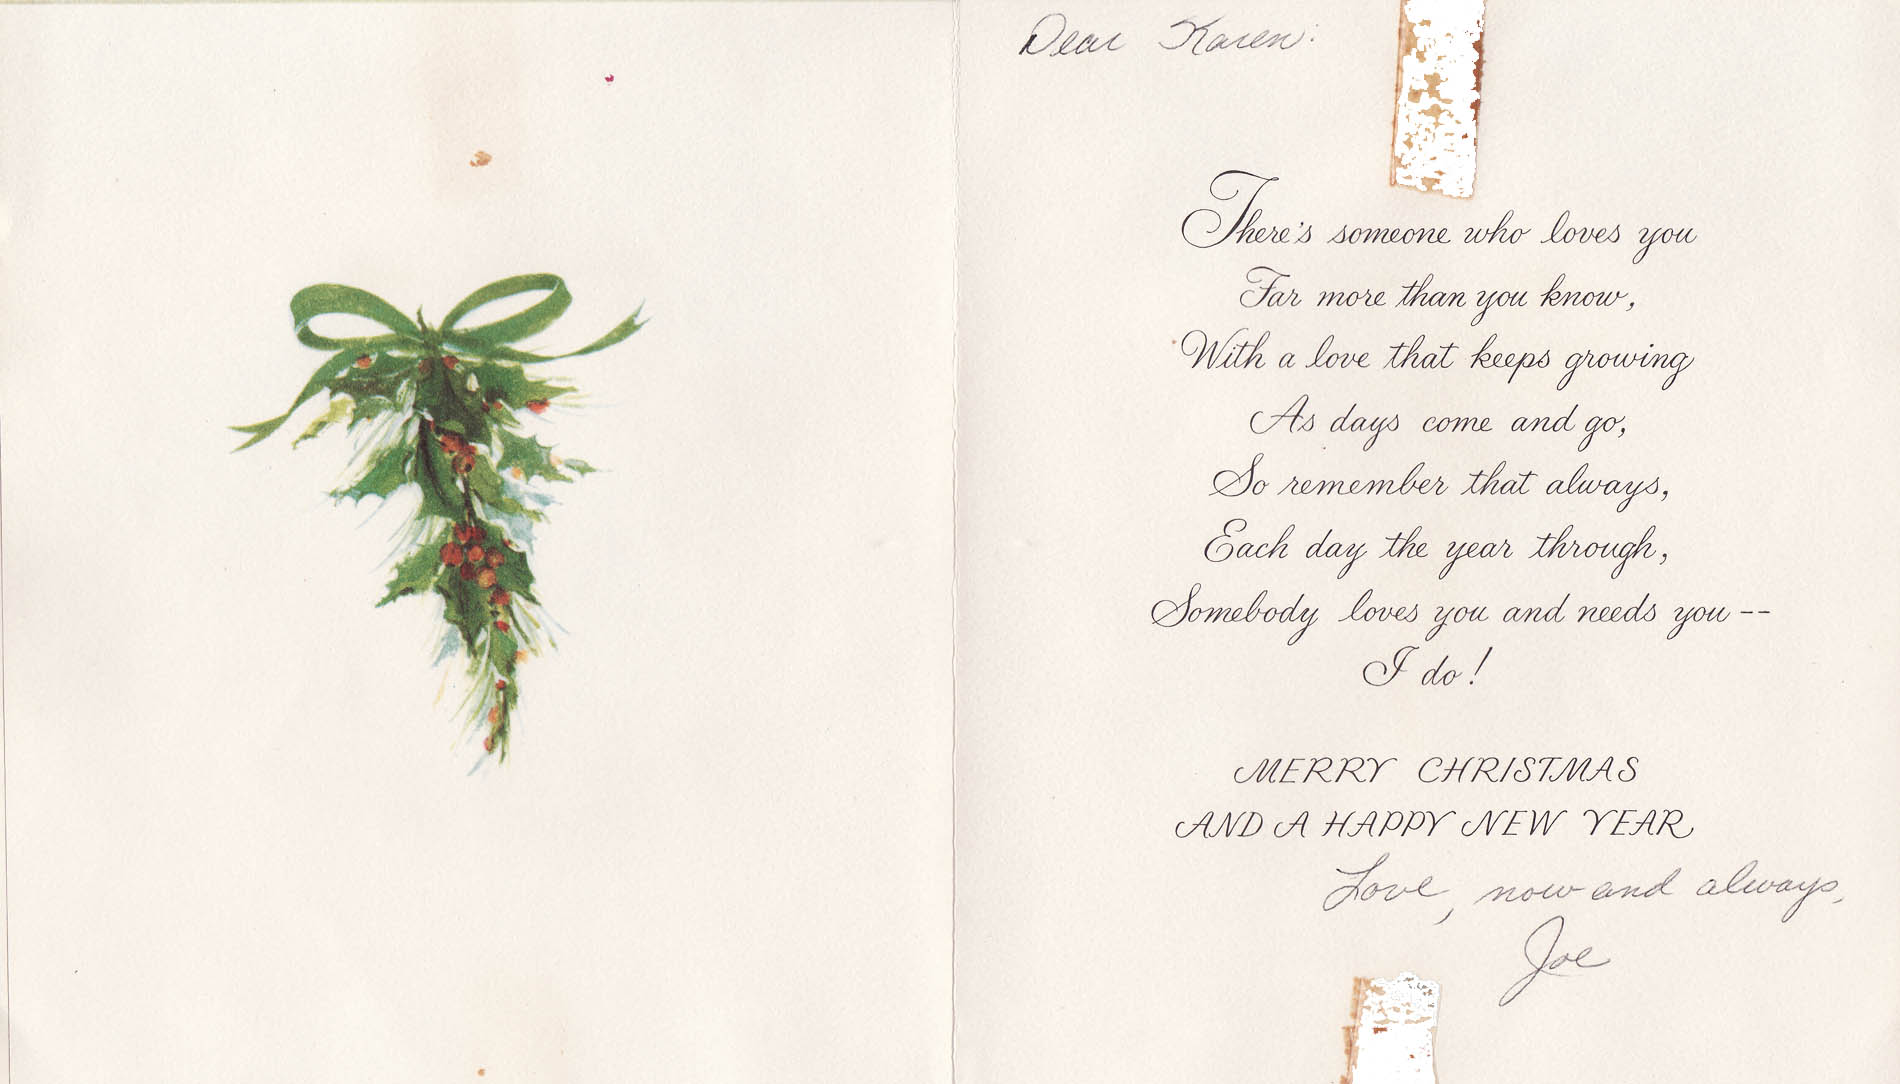 Dear Karen:
There's someone who loves you
Far more than you know,
With a love that keeps growing
As days come and go,
So remember that always,
Each day the year through,
Somebody loves you and needs you --
I do!
MERRY CHRISTMAS
AND A HAPPY NEW YEAR
Love, now and always,
Joe